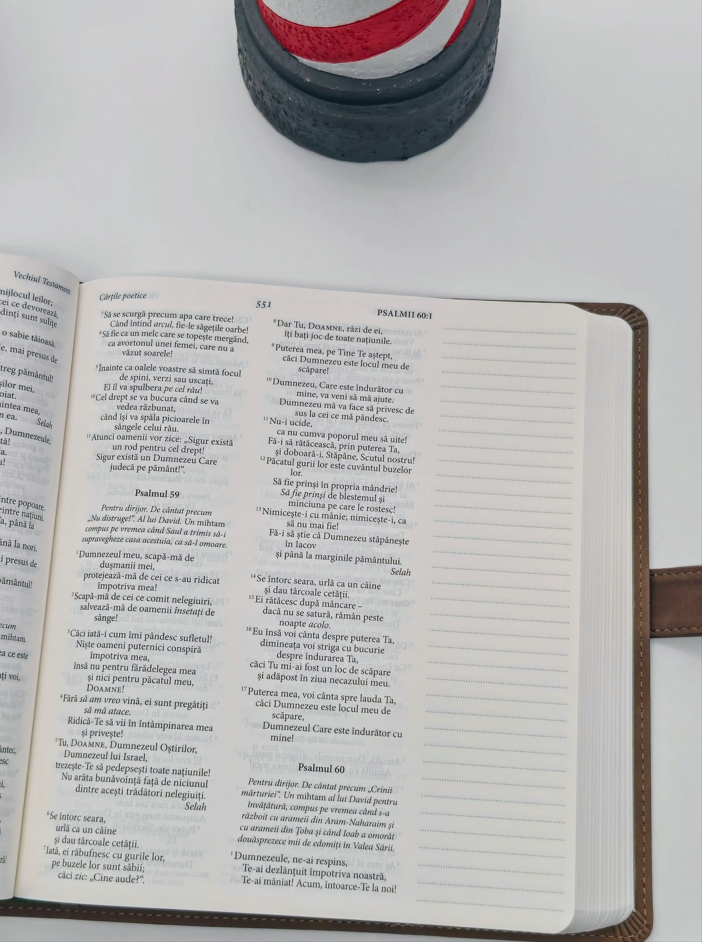 Vechiul Testament
mijlocul leilor;
ei ce devorează,
dinți sunt sulițe
o sabie tăioasă.
e, mai presus de
treg pământul!
șilor mei,
oiat.
uintea mea,
n ea. Selah
, Dumnezeule,
tă!
ta!
a!
intre popoare.
rintre națiuni.
a, până la
ână la nori.
i presus de
pământul!
ecum
mihtam.
ea ce este
ați voi,
Cărțile poetice
551
PSALMII 60:1
7Să se scurgă precum apa care trece!
Când întind arcul, fie-le săgețile oarbe!
8Să fie ca un melc care se topește mergând,
ca avortonul unei femei, care nu a
văzut soarele!
9Înainte ca oalele voastre să simtă focul
de spini, verzi sau uscați,
El îl va spulbera pe cel rău!
10Cel drept se va bucura când se va
vedea răzbunat,
când își va spăla picioarele în
sângele celui rău.
11Atunci oamenii vor zice: „Sigur există
un rod pentru cel drept!
Sigur există un Dumnezeu Care
judecă pe pământ!”.
Psalmul 59
Pentru dirijor. De cântat precum
„Nu distruge!”. Al lui David. Un mihtam
compus pe vremea când Saul a trimis să-i
supravegheze casa acestuia, ca să-l omoare.
1Dumnezeul meu, scapă-mă de
dușmanii mei,
protejează-mă de cei ce s-au ridicat
împotriva mea!
2Scapă-mă de cei ce comit nelegiuiri,
salvează-mă de oamenii însetați de
sânge!
3Căci iată-i cum îmi pândesc sufletul!
Niște oameni puternici conspiră
împotriva mea,
însă nu pentru fărădelegea mea
și nici pentru păcatul meu,
DOAMNE!
4Fără să am vreo vină, ei sunt pregătiți
să mă atace.
Ridică-Te să vii în întâmpinarea mea
și privește!
5Tu, DOAMNE, Dumnezeul Oștirilor,
Dumnezeul lui Israel,
trezește-Te să pedepsești toate națiunile!
Nu arăta bunăvoință față de niciunul
dintre acești trădători nelegiuiți.
Selah
6Se întorc seara,
urlă ca un câine
și dau târcoale cetății.
7Iată, ei răbufnesc cu gurile lor,
pe buzele lor sunt săbii;
căci zic: „Cine aude?”.
8Dar Tu, DOAMNE, râzi de ei,
Îți bați joc de toate națiunile.
9Puterea mea, pe Tine Te aștept,
căci Dumnezeu este locul meu de
scăpare!
10Dumnezeu, Care este îndurător cu
mine, va veni să mă ajute.
Dumnezeu mă va face să privesc de
sus la cei ce mă pândesc.
11Nu-i ucide,
ca nu cumva poporul meu să uite!
Fă-i să rătăcească, prin puterea Ta,
și doboară-i, Stăpâne, Scutul nostru!
12Păcatul gurii lor este cuvântul buzelor
lor.
Să fie prinși în propria mândrie!
Să fie prinși de blestemul și
minciuna pe care le rostesc!
13Nimicește-i cu mânie; nimicește-i, ca
să nu mai fie!
Fă-i să știe că Dumnezeu stăpânește
în Iacov
și până la marginile pământului.
Selah
14Se întorc seara, urlă ca un câine
și dau târcoale cetății.
15Ei rătăcesc după mâncare –
dacă nu se satură, rămân peste
noapte acolo.
16Eu însă voi cânta despre puterea Ta,
dimineața voi striga cu bucurie
despre îndurarea Ta,
căci Tu mi-ai fost un loc de scăpare
și adăpost în ziua necazului meu.
17Puterea mea, voi cânta spre lauda Ta,
căci Dumnezeu este locul meu de
scăpare,
Dumnezeul Care este îndurător cu
mine!
Psalmul 60
Pentru dirijor. De cântat precum „Crinii
mărturiei”. Un mihtam al lui David pentru
învățătură, compus pe vremea când s-a
războit cu arameii din Aram-Naharaim și
cu arameii din Țoba și când Ioab a omorât
douăsprezece mii de edomiți în Valea Sării.
1Dumnezeule, ne-ai respins,
Te-ai dezlănțuit împotriva noastră,
Te-ai mâniat! Acum, întoarce-Te la noi!